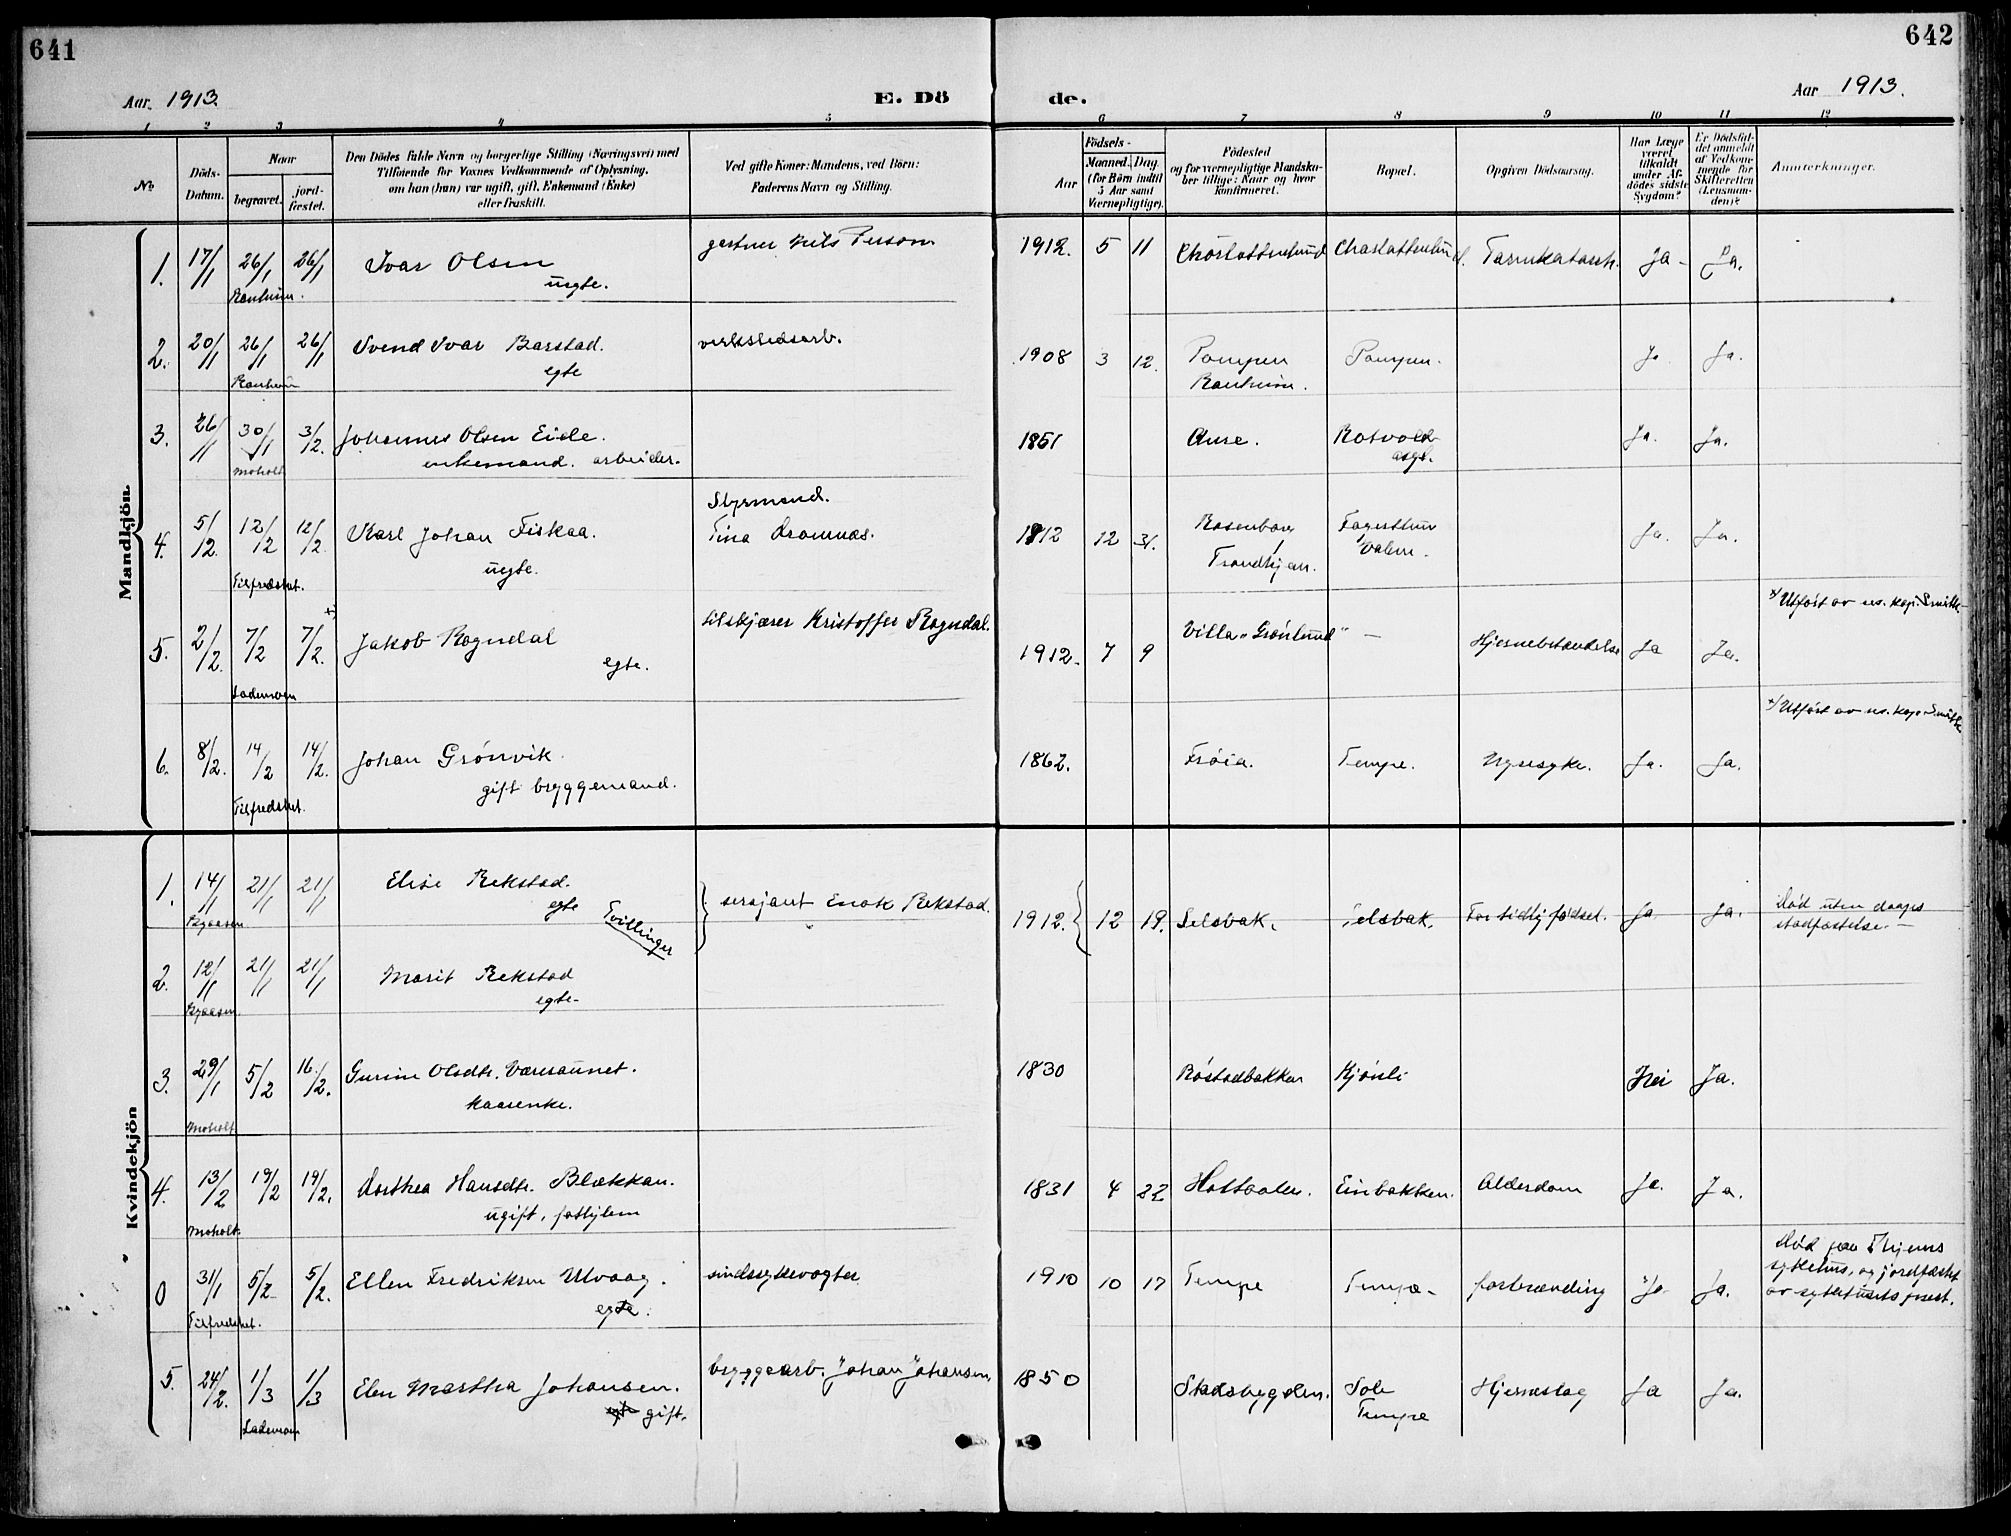 641
642
Aar. 1913.
E. Dö
de.
Aar 1913.
1 2 3 4 5 6 7 8 9 10 11 12
No
Döds-Datum.
Naar
begravet.
jord-fæstet.
Den Dödes fulde Navn og borgerlige Stilling (Næringsvei) med
Tilföiende for Voxnes Vedkommende af Oplysning,
om han (hun) var ugift, gift, Enkemand (Enke)
eller fraskilt.
Ved gifte Koner: Mandens, ved Börn:
Faderens Navn og Stilling.
Födsels-
Aar
Maaned. Dag.
(for Börn indtil
5 Aar samt
Værnepligtige).
Födested
og for værnepligtige Mandska-
ber tillige: Naar og hvor
konfirmeret.
Bopæl.
Opgiven Dödsaarsag.
Har Læge
været
tilkaldt
under Af-
dödes sidste
Sygdom?
Er Dödsfal-
det anmeldt
af Vedkom-
mende for
Skifteretten
(Lensman-
den)?
Anmærkninger.
Mandkjön.
1. 17/1 26/1 26/1 Ivar Olsen gartner Nils 1912. 5 11 Charlottenlund Charlottenlund. Tarmkatarrh. Ja - Ja.
Ranheim. uegte.
2. 20/1 26/1 26/1 Svend Ivar Barstad. verkstedsarb. 1908 3 12. Pompen Pompen. Ja. Ja.
Ranheim egte Ranheim.
3. 26/1 30/1 3/2. Johannes Olsen Eide. 1851 Aure. Rotvold Ja. Ja.
Moholt enkemand. arbeider. asyl.
Styrmand.
4. 5/12. 12/2 12/2. Karl Johan Fiskaa. Tina 1912 12 31. Rosenborg Ja. Ja.
Tilfredshet. uegte. Trondhjem.
5. 2/2. 7/2 7/2. Jakob Rogndal Kristoffer Rogndal. 1912. 7 9 Villa "Grønlund" - Hjernebetændelse Ja Ja. x/ Utført av res. kap.
Lademoen egte.
x/ Utført av res. kap.
6. 8/2. 14/2 14/2. Johan Grønvik. 1862. Frøia. Tempe. Nyresyke. Ja. Ja.
Tilfredshet. gift bryggemand.
Kvindekjön
1. 14/1 21/1 21/1 Elise Rekstad. sersjant Enok Rekstad. 1912. 12 19. Selsbak. Selsbak. For tidlig fødsel. Ja Ja. Død uten daaps
Byaasen egte Tvillinger stadfæstelse. -
2. 12/1 21/1 21/1 Marit Rekstad
Byaasen. egte-
3. 29/1 5/2 16/2. Guruine Olsdtr. Væresaunet. 1830 Røstadbakken Kjønli Nei Ja.
Moholt kaarenke.
4. 13/2 19/2 19/2. Dorthea Hansdtr. Blækkan. 1831 4 22 Einbakken. Alderdom Ja. Ja.
Moholt. ugift, fattiglem
0 31/1 5/2 5/2. Ellen Fredriksen Utvaag. sindssykevogter 1910 10 17 Tempe Tempe - forbrænding Ja Ja. Død paa Thjems
sykehus, og jordfæstet
av sykehusets prest.
Tilfredshet. egte.
5. 24/2. 1/3 1/3 Elen Martha Johansen. bryggearb. Johan Johansen. 1850 Stadsbygden. Sole Hjerneslag Ja Ja.
Lademoen egte gift. Tempe